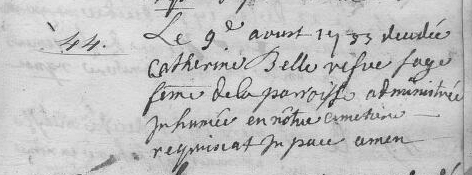 44. Le 9e avust 1733 decedée
Catherine Belle vefve sage
féme de la parroisse administrée
Inhumée en nôtre cimetiere
requiscat In pace amen